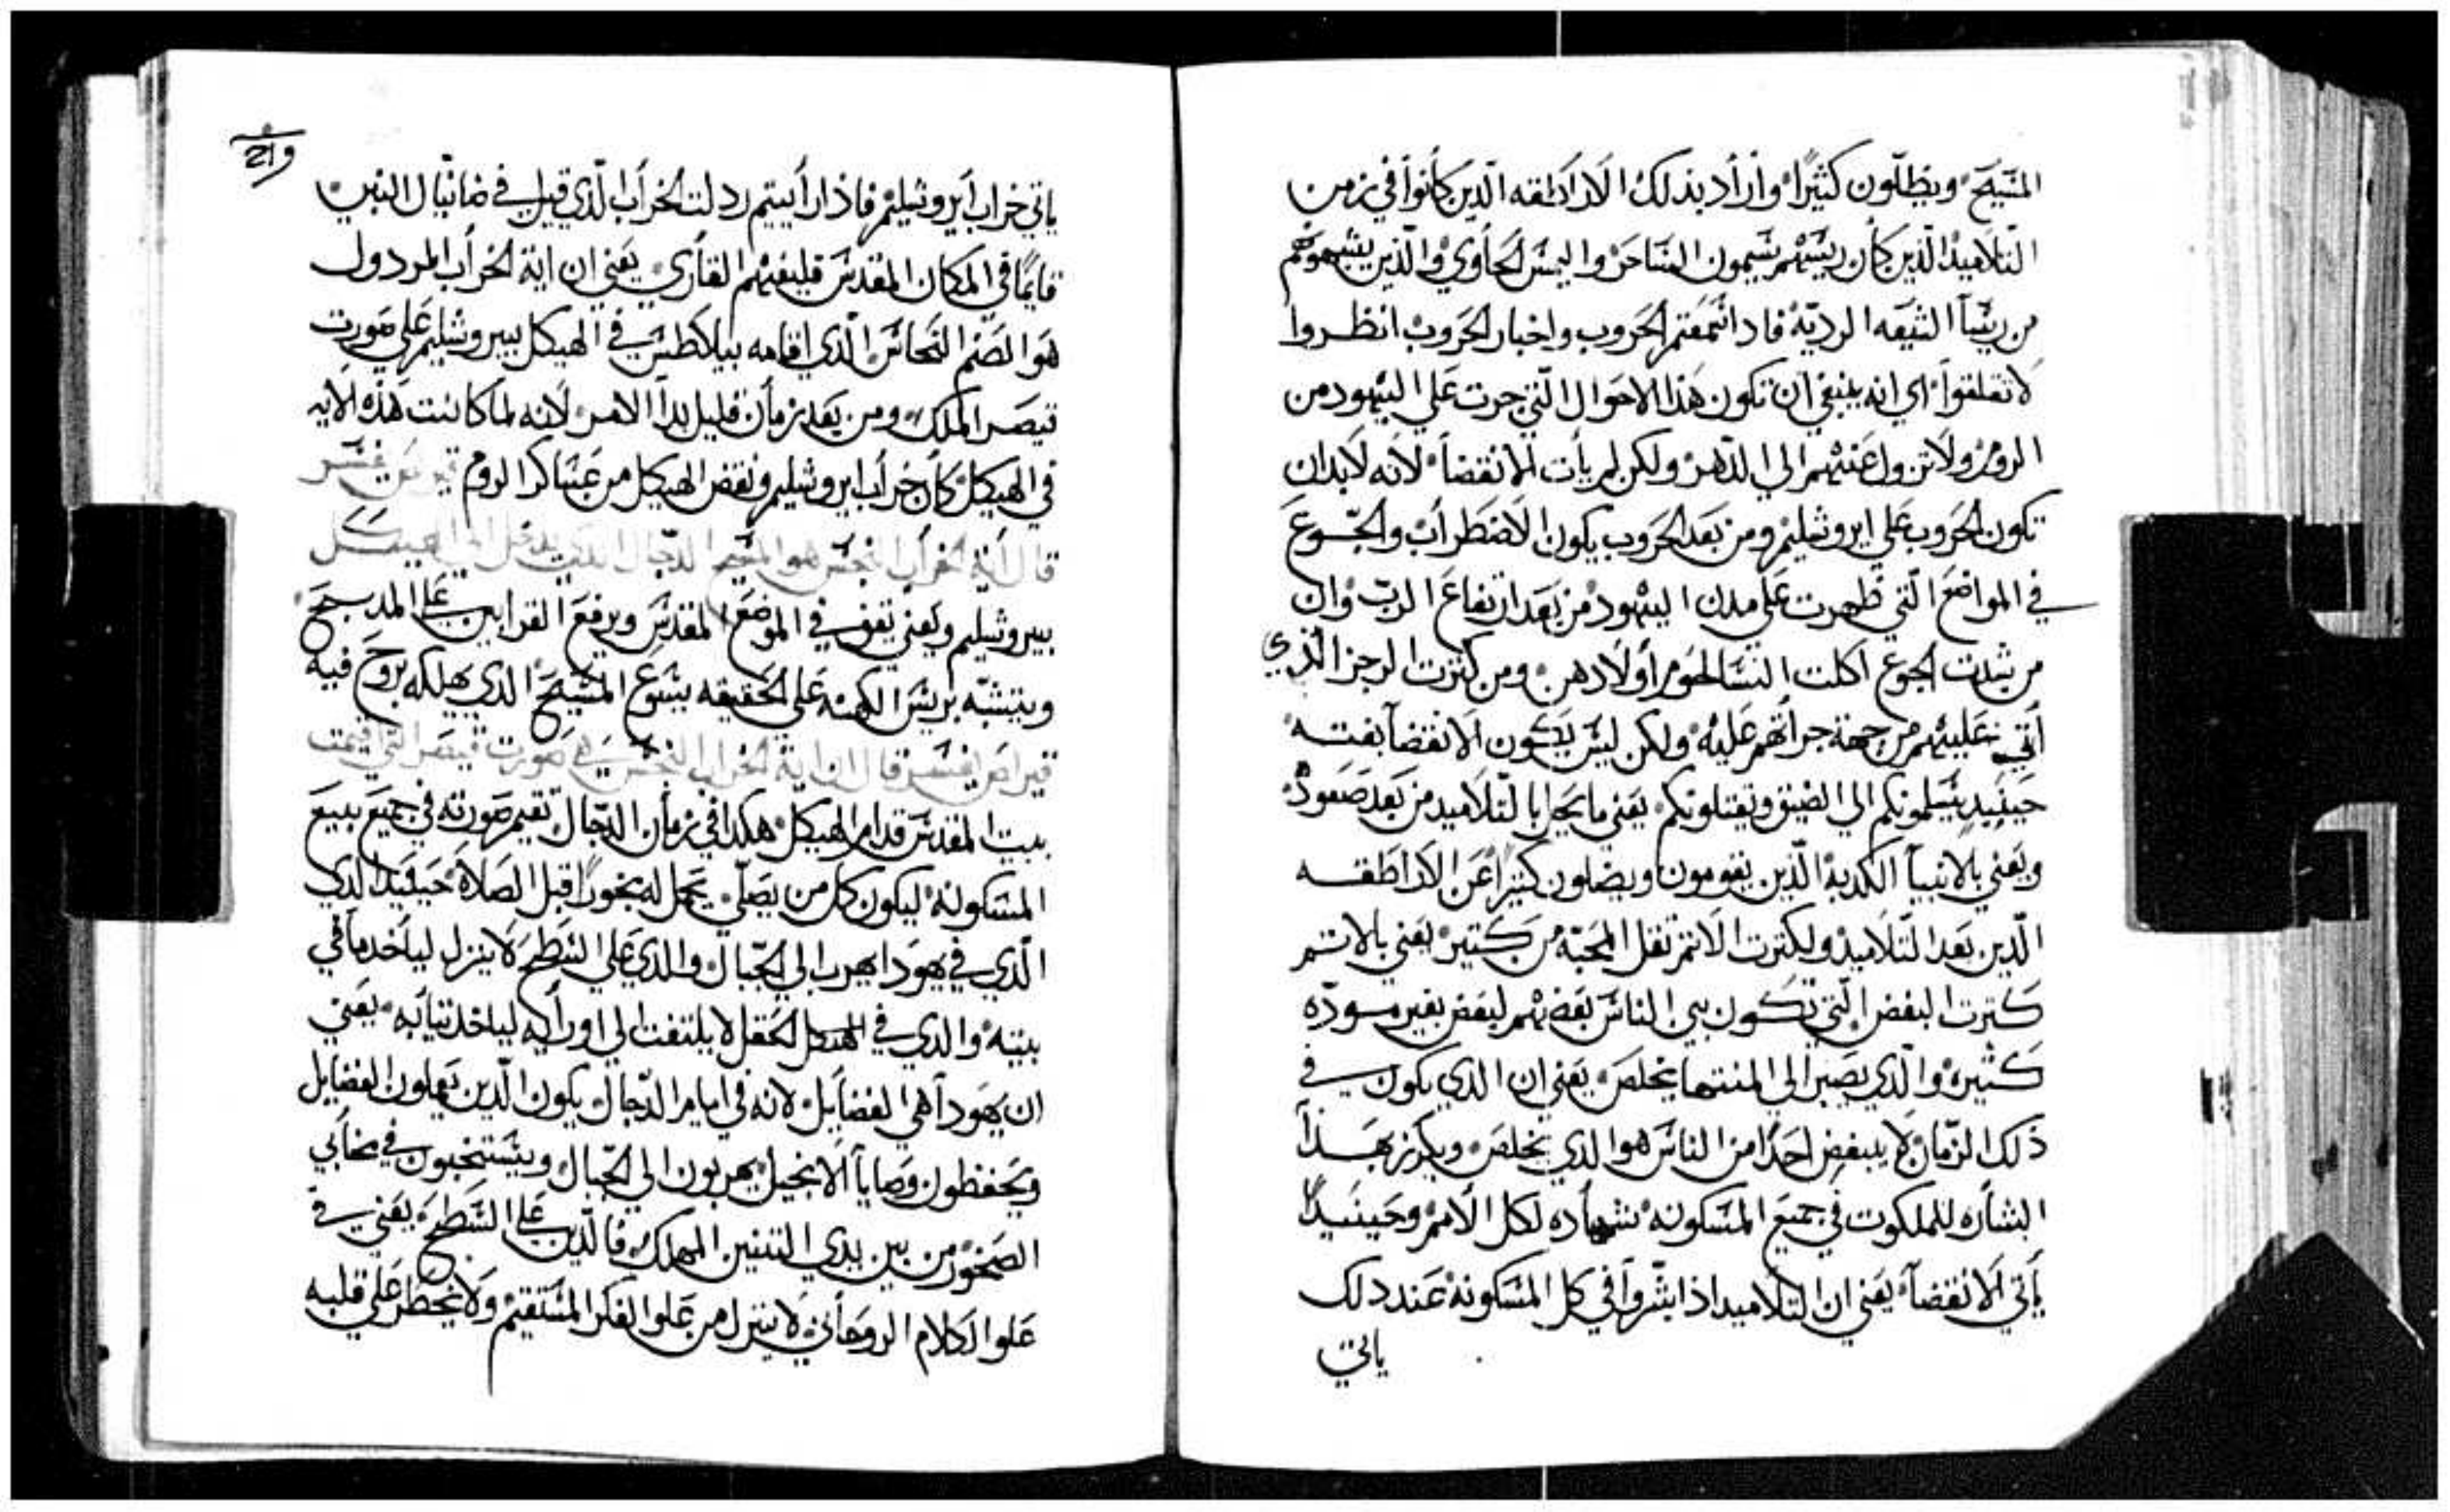 المسيح ويظلّون كثيرًا وأراد بذلك الاراطقه الّذين كانوا في زمن
التلاميذ الّذين كان ريسهم سيمون الساحر واليمس الحاوي والّذين يشبهوهم
من ريسا الشيعه الرديّه فادا سمعتم الحروب واخبار الحروب انظروا
لا تقلقوا اي انه ينبغي ان تكون هذا الاحوال الّتي جرت علي اليهود من
الروم ولا تزول عنهم الي الدهر ولكن لم يأت الانقضا لانه لابد ان
تكون الحروب علي ايروشليم ومن بعد الحروب يكون الاضطراب والجّوع
في المواضع الّتي ظهرت علي مدن اليهود من بعد ارتفاع الربّ وان
من شدت الجوع اكلت النسا لحوم أولادهن ومن كترت الرجز الّذي
أتي عليهم من جهة جرأتهم عليه ولكن ليس يكون الانقضا بغته
حينيد يسلمونكم الي الضيق وتقتلونكم يعني ما يحل بالتّلاميد من بعد صعوده
ويعني بالانبيآ الكدبه الّذين يقومون ويضلون كثيرًا عن الاراطقه
الّذين بعد التّلاميد ولكترت الاتم تقل المحبّه من كتير يعني بالاتم
كترت البغض الّتي تكون بين الناس بعضهم لبعض بغير مودّه
كثيره والّدي يصبر الي المنتها يخلص يعني ان الدي يكون في
ذلك الزّمان لا يبغض احدًا من الناس هو الدي يخلص ويكرز بهذا
البشاره للملكوت في جميع المسكونه شهاده لكل الأمم وحينيدًا
يأتي الانقضآ يعني ان التلاميد اذا بشّروا في كل المسكونه عند دلك
ياتي
و21
ياتي خراب ايروشليم فاذا رأيتم ردلت الخراب الّذي قيل في دانيال النبي
قايمًا في المكان المقدس فليفهم القاري يعني ان اية الخراب المردول
هو الصنم النحاس الّذي اقامه بيلاطس في الهيكل بيروشليم علي صورت
قيصر الملك ومن بعد زمان قليل بدا الامر لانه لما كانت هذه الايه
في الهيكل كان خراب ايروشليم ونقض الهيكل من عساكر الروم
قال أية الخراب النجس هو المسيح الدجّال الذي يدخل الي الهيكل
بيروشليم ويعني تقف في الموضع المقدس ويرفع القرابين علي المدبح
ويتشبّه بريس الكهنه علي الحقيقه يسوع المسيح الدي يهلكه بروح فيه
قال ان اية الخراب النجس هي صورت قيصر التي اقيمت
ببيت المقدس قدام الهيكل هكدا في زمان الدّجال تقيم صورته في جميع بيع
المسكونه ليكون كل من يصلّي يحمل له بخورًا قبل الصلاة حينيد الدي
الّذي في يهودا يهرب الي الجّبال والدي علي السطح لا ينزل لياخد ما في
بيته والدي في الحقل لا يلتفت الي اورأيه لياخد تيابه يعني
ان يهودا هي الفضايل لانه في ايام الدّجال يكون الّدين يعملون الفضايل
ويحفظون وصايا الانجيل يهربون الي الجّبال ويستخبون في مخابي
الصخور من بين يدي التنين المهلك فالّدين علي السطح يعني في
علو الكلام الروحاني لا ينزل من علو الفكر المستقيم ولا يخطر علي قلبه